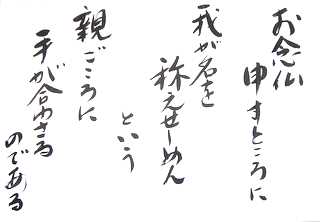 お念仏
申すところに
我が名を
称えせしめん
という
親ごころに
手が合わさる
のである